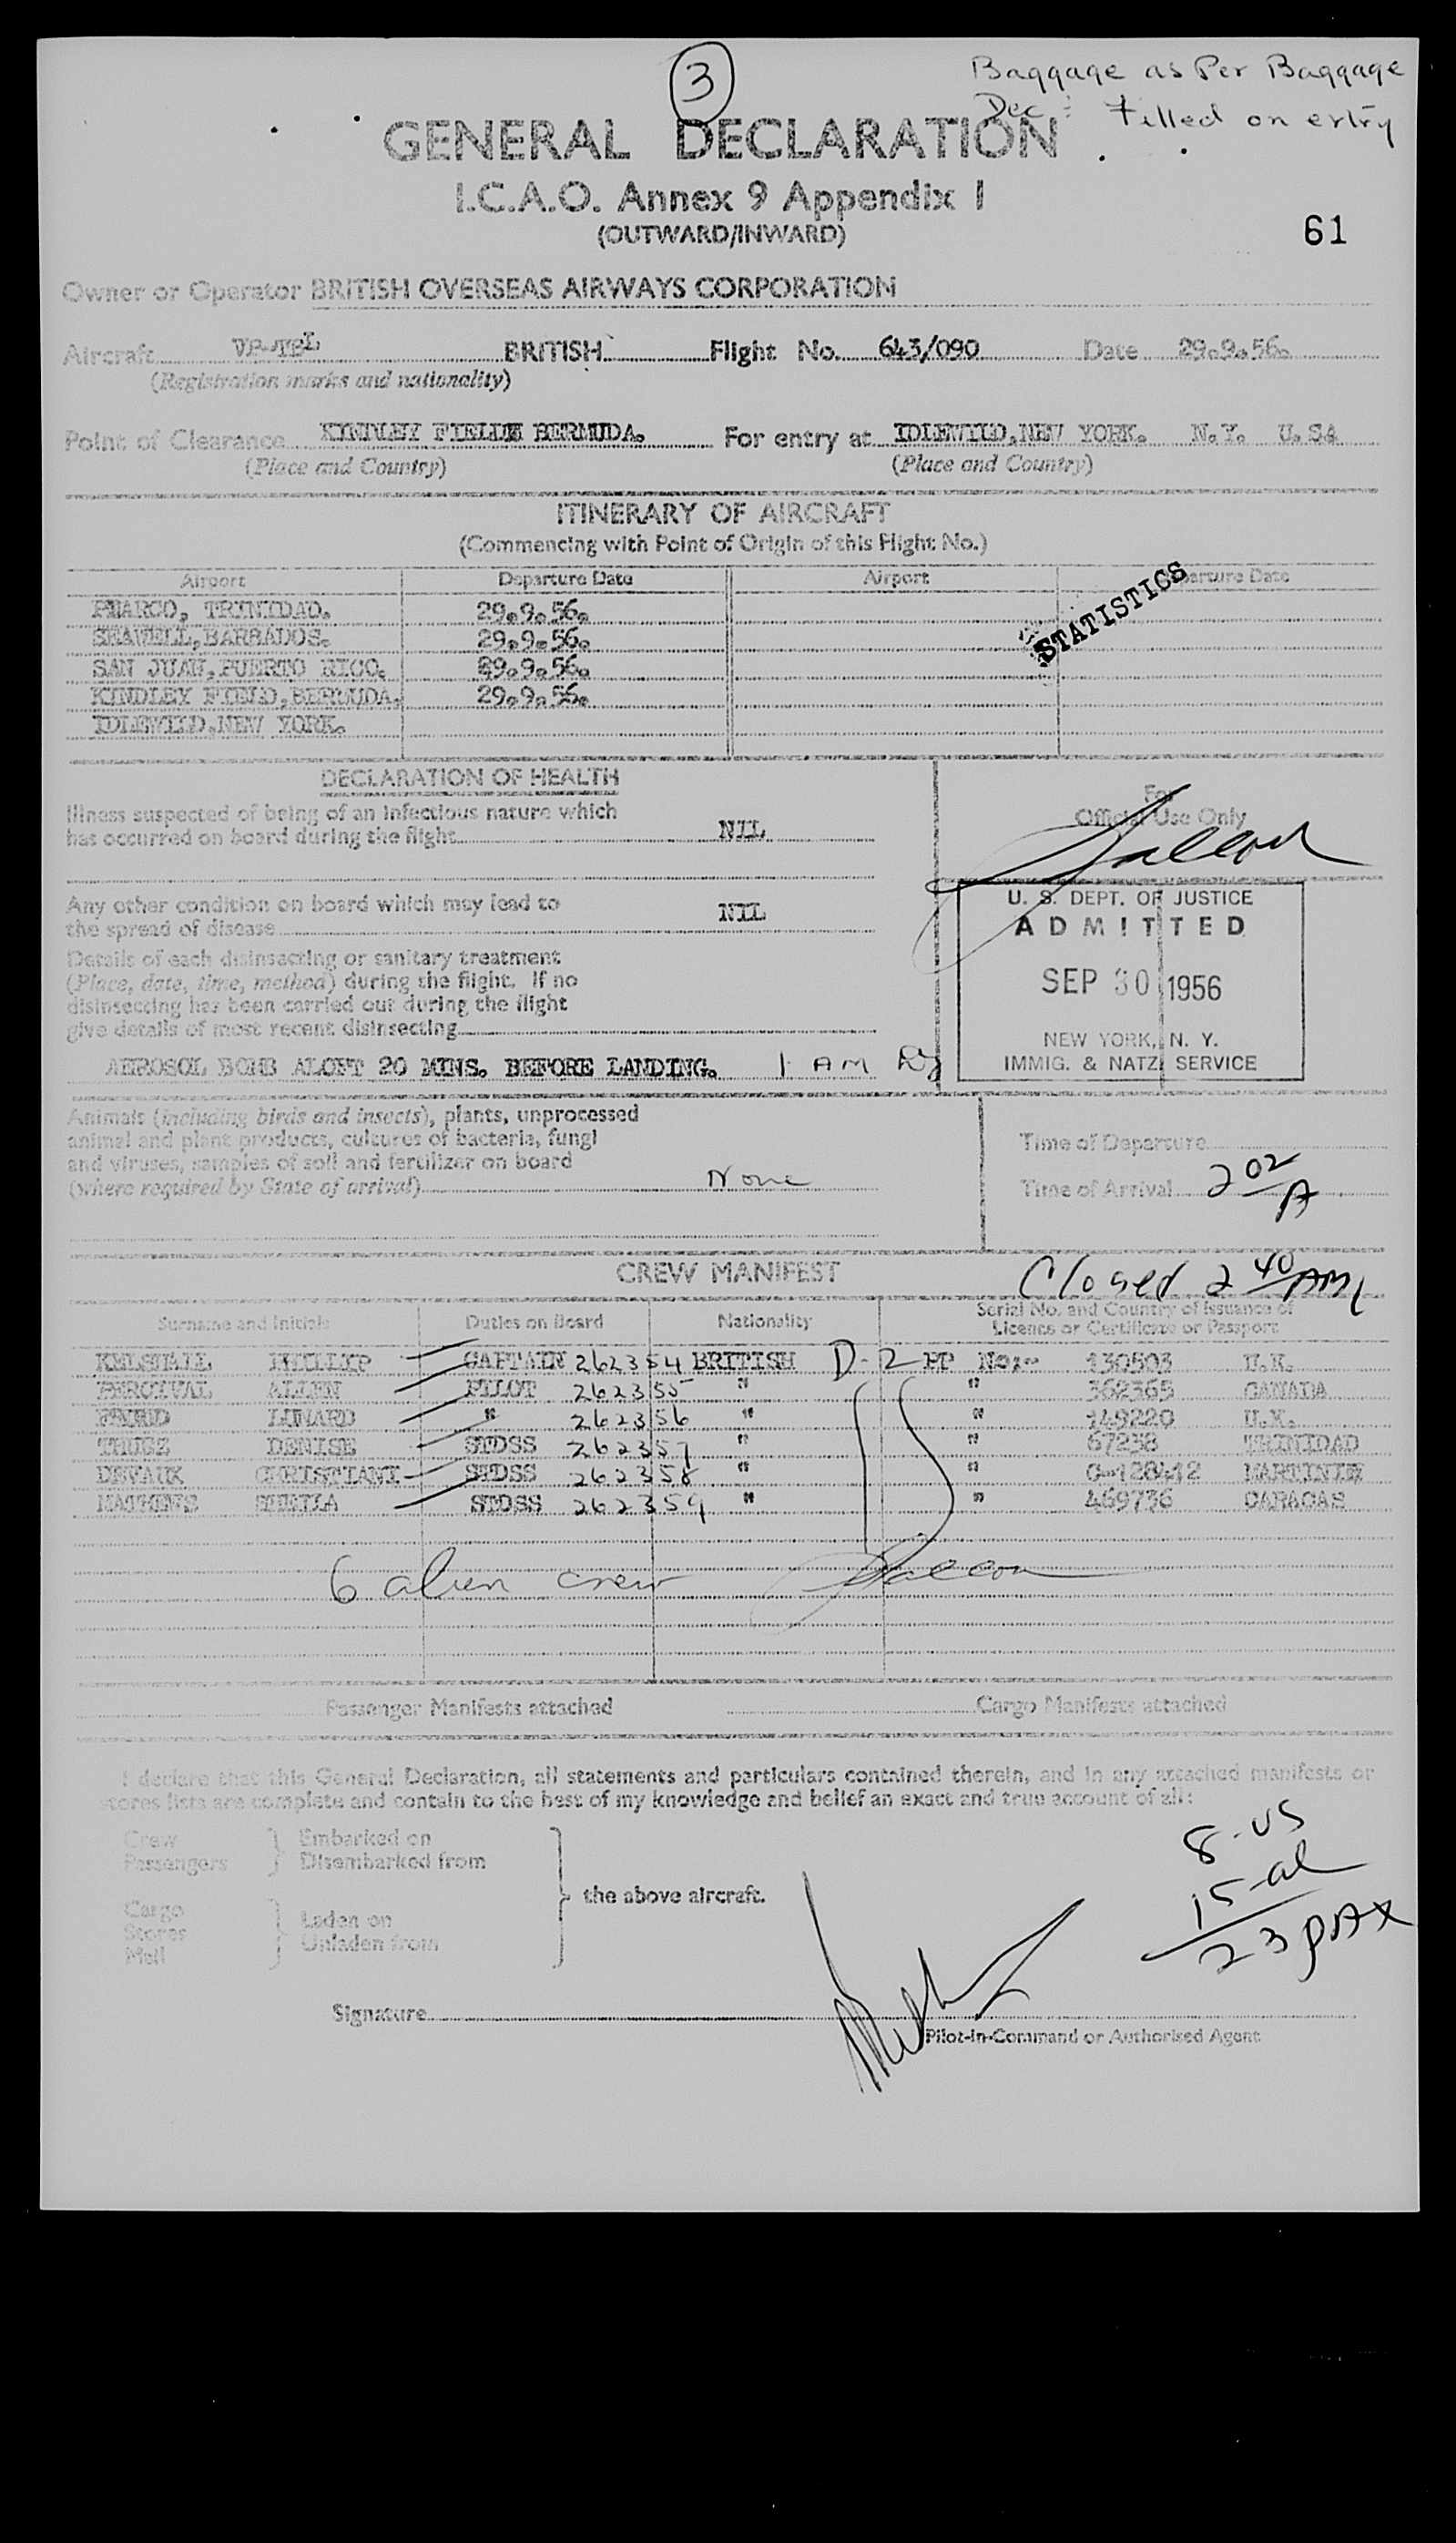 3
Baggage as Per Baggage
Dec: filled on entry
GENERAL DECLARATION
I.C.A.O. Annex 9 Appendix I
(OUTWARD/INWARD)
61
Owner or Operator BRITISH OVERSEAS AIRWAYS CORPORATION
Aircraft VP-TBL BRITISH Flight No. 643/090 Date 29.9.56.
(Registration marks and nationality)
Point of Clearance KINDLEY BERMUDA. For entry at IDLEWILD, NEW YORK. N.Y. U.SA
(Place and Country) (Place and Country)
ITINERARY OF AIRCRAFT
(Commencing with Point of Origin of this Flight No.)
Airport Departure Date Airport Departure Date
PIARCO, TRINIDAD. 29.9.56.
SEAWELL, BARBADOS. 29.9.56.
SAN JUAN, PUERTO RICO. 29.9.56.
KINDLEY FIELD, BERMUDA. 29.9.56.
IDLEWILD, NEW YORK.
STATISTICS
DECLARATION OF HEALTH
Illness suspected of being of an infectious nature which
has occurred on board during the flight NIL
For
Official Use Only
Any other condition on board which may lead to
the spread of disease NIL
U. S. DEPT. OF JUSTICE
ADMITTED
SEP 30 1956
NEW YORK, N. Y.
IMMIG. & NATZ. SERVICE
Details of each disinsecting or sanitary treatment
(Place, date, time, method) during the flight. If no
disinsecting has been carried out during the flight
give details of most recent disinsecting
AEROSOL BOMB ALOFT 20 MINS. BEFORE LANDING. 1 AM
Animals (including birds and insects), plants, unprocessed
animal and plant products, cultures of bacteria, fungi
and viruses, samples of soil and fertilizer on board
(where required by State of arrival) None
Time of Departure
Time of Arrival 2 02 A
CREW MANIFEST
Closed 2 40 AM
Surname and Initials Duties on Board Nationality Serial No. and Country of Issuance of
Licence or Certificate or Passport
KELSHALL PHILLIP CAPTAIN 262354 BRITISH D-2 PP No:- 130503 U.K.
PERCIVAL ALLEN PILOT 262355 " " 362365 CANADA
LUNARD " 262356 " " 149220 U.K.
DENISE STDSS 262357 " " 67238 TRINIDAD
CHRISTIANE STDSS 262358 " " 0-128412
SHEILA STDSS 262359 " " 469736 CARACAS
6 alien crew
Passenger Manifests attached Cargo Manifests attached
I declare that this General Declaration, all statements and particulars contained therein, and in any attached manifests or
stores lists are complete and contain to the best of my knowledge and belief an exact and true account of all:
Crew
Passengers
Embarked on
Disembarked from
Cargo
Stores
Mail
Laden on
Unladen from
the above aircraft.
8-US
15-al
23 PAX
Signature
Pilot-in-Command or Authorised Agent